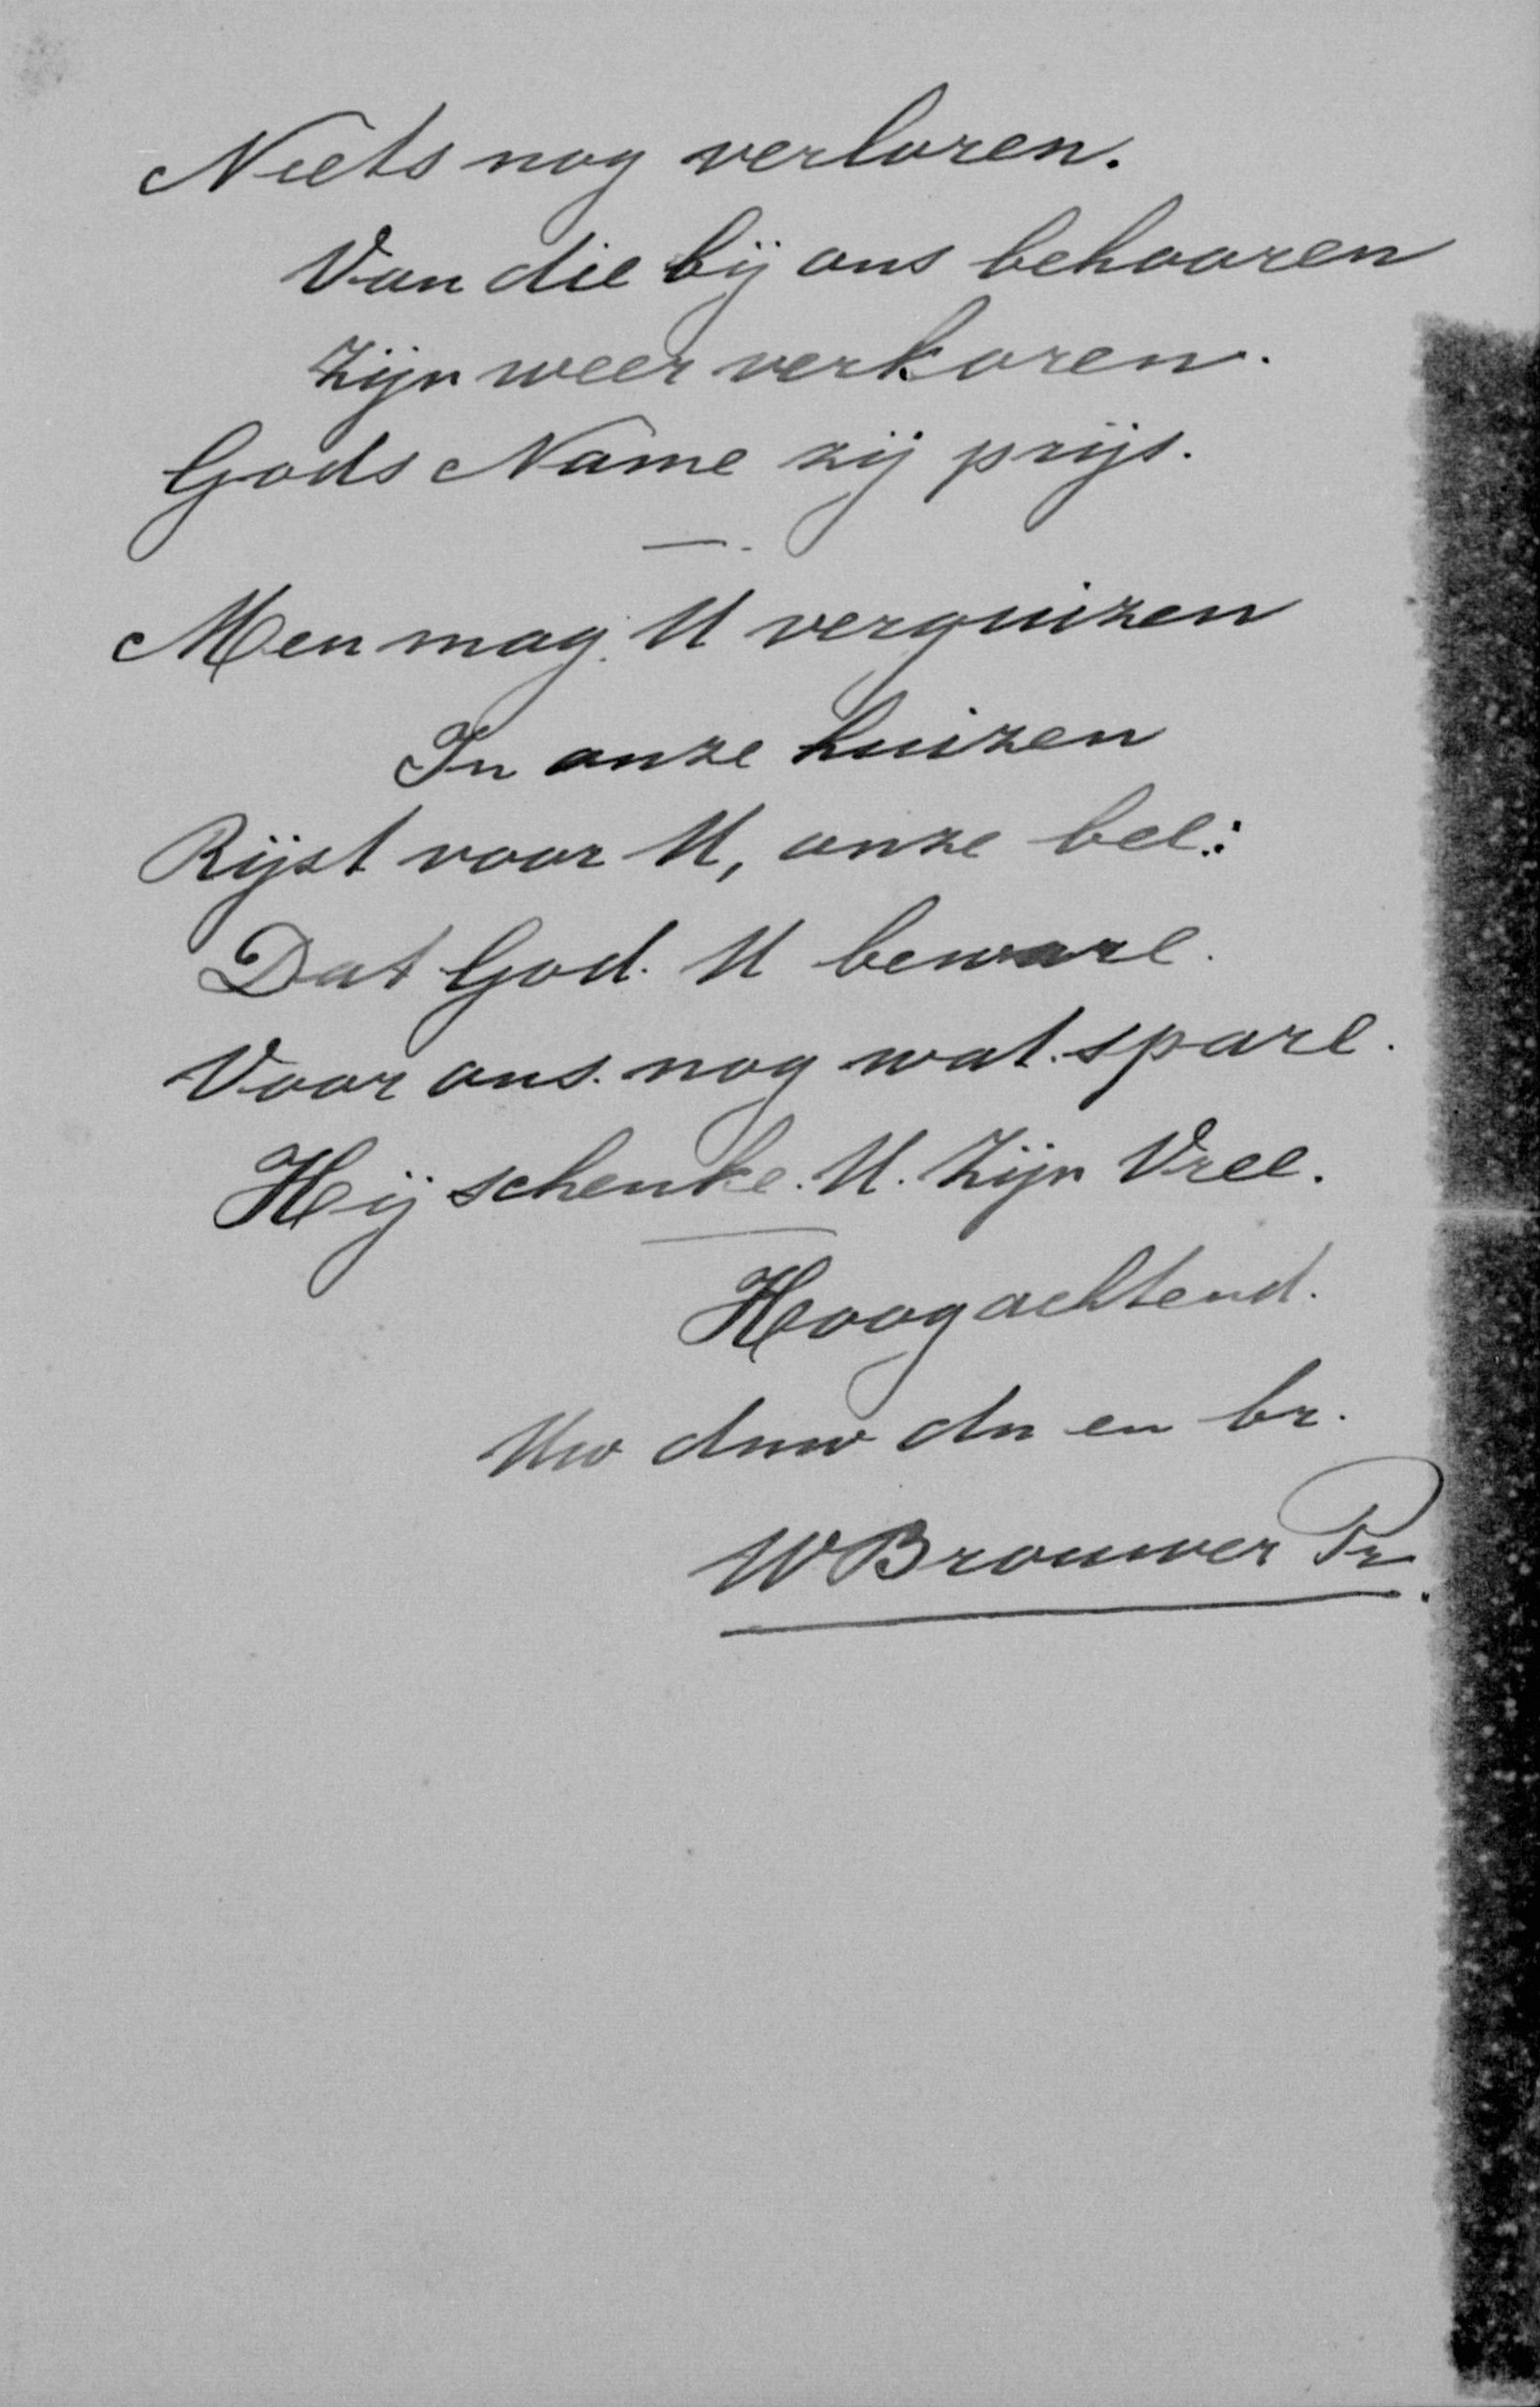 Niets nog verloren.
Van die bij ons behooren
Zijn weer verkoren.
Gods Name zij prijs.
Men mag U verguizen
In onze huizen
Rijst voor U, onze bee:
Dat God U beware.
Voor ons nog wat spare.
Hij schenke U. Zijn Vree.
Hoogachtend.
Uw dnw dn en br.
W Brouwer Pz.